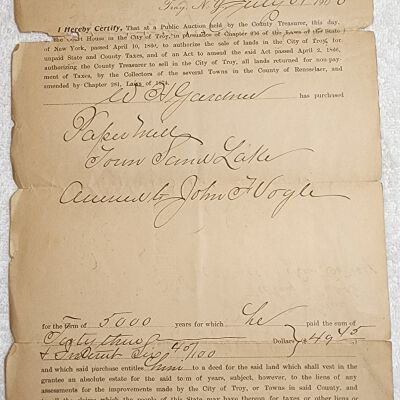 Troy, N.Y. July
I Hereby Certify, That at a Public Auction held by the County Treasurer, this day,
the Court House in the City of Troy, in pursuance of Chapter 936 of the Laws of the State
of New York, passed April 10, 1850, to authorize the sale of lands in the City of Troy, for
unpaid State and County Taxes, and of an Act to amend the said Act passed April 2, 1866,
authorizing the County Treasurer to sell in the City of Troy, all lands returned for non pay-
ment of Taxes, by the Collectors of the several Towns in the County of Rensselaer, and
amended by Chapter 281, Laws of
W A Gardner has purchased
Paper Mill
Town Sand Lake
Assessed to John F Vogle
for the term of 5000 years for which he paid the sum of
45/100 Dollars $ 49 45
and which said purchase entitles him to a deed for the said land which shall vest in the
grantee an absolute estate for the said term of years, subject, however, to the liens of any
assessments for the improvements made by the City of Troy, or Towns in said County, and
the people of this State may have thereon for taxes or other liens